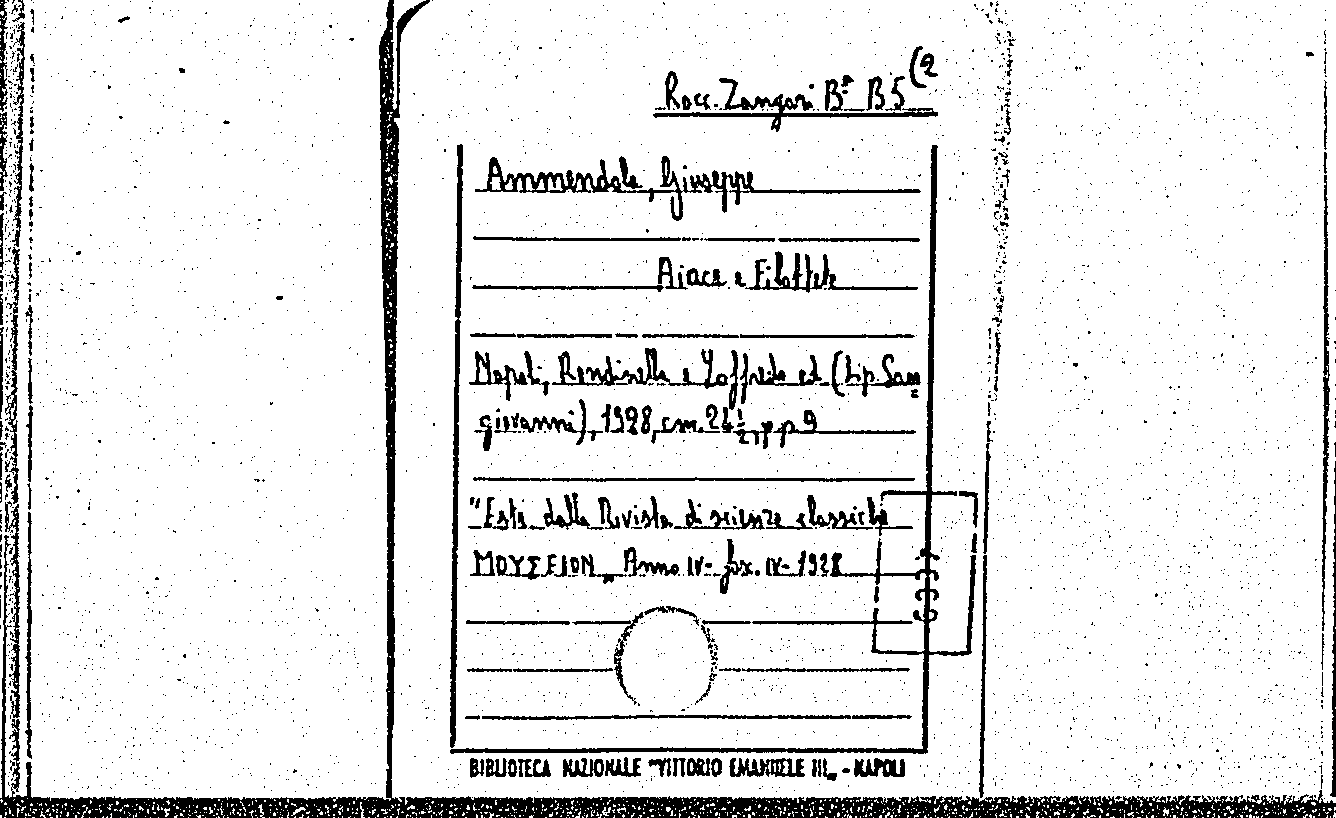 Racc. Zangari Bª B5 (2
Ammendola, Giuseppe
Aiace e Filottete
Napoli, Rondinella e Loffredo ed (Tip. San
giovanni), 1928, cm. 24½, pp. 9
"Estr. dalla Rivista di scienze classiche
ΜΟΥΣΕΙΟΝ„ Anno IV- fax. IV- 1928
BIBLIOTECA NAZIONALE "VITTORIO EMANUELE III„ - NAPOLI